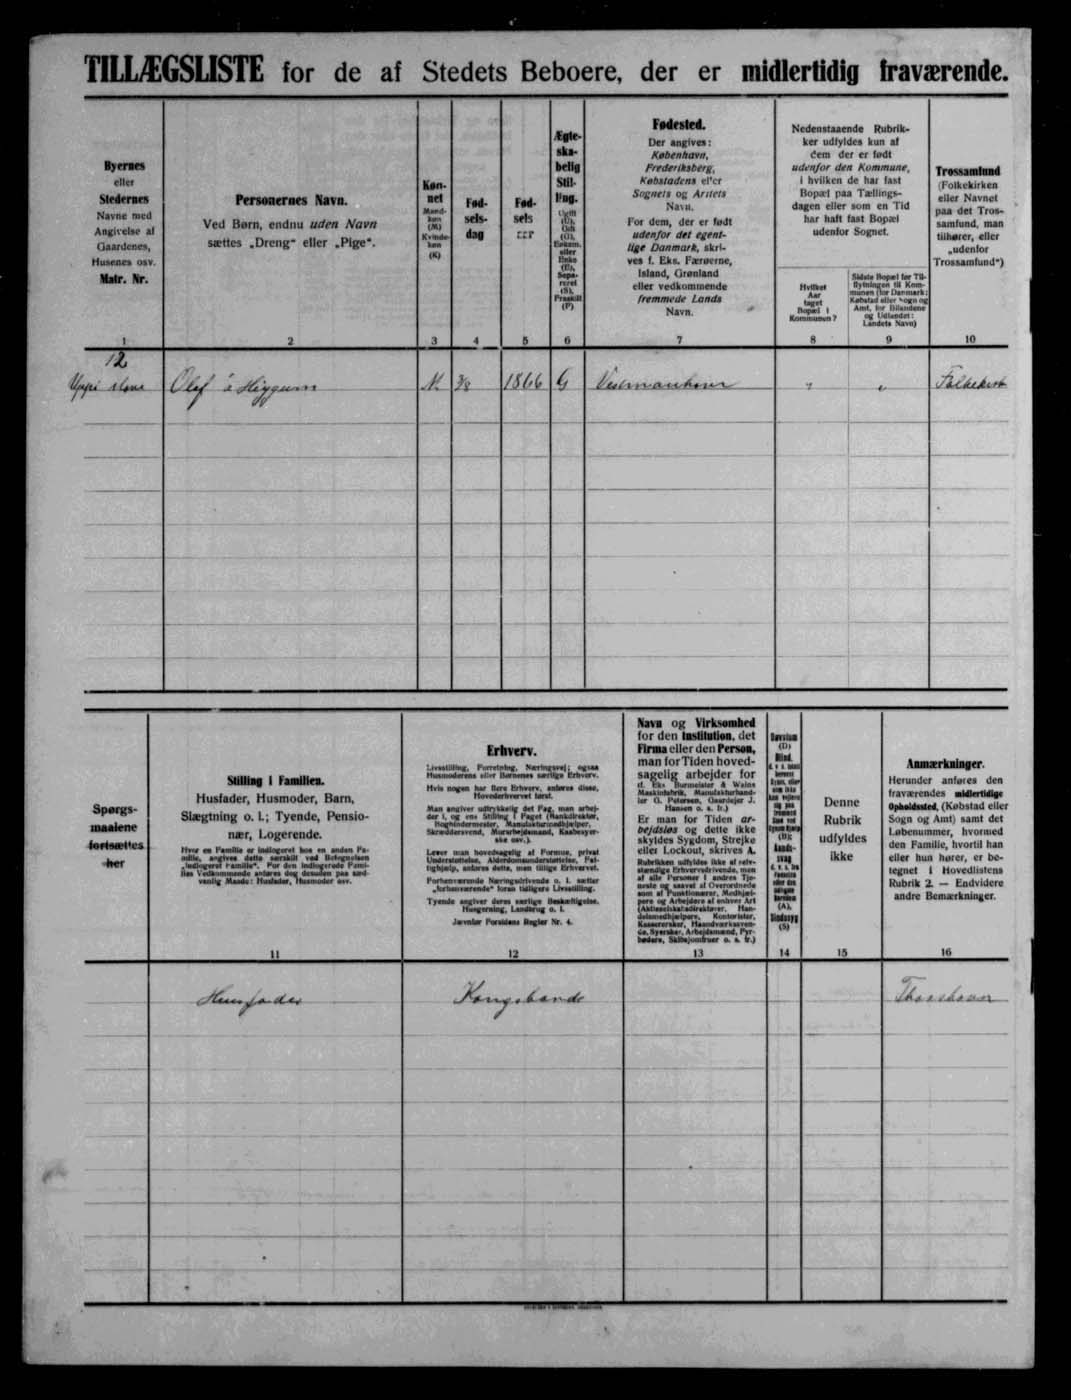 TILLÆGSLISTE for de af Stedets Beboere, der er midlertidig fraværende.
Byernes
eller
Stedernes
Navne med
Angivelse af
Gaardenes,
Husenes osv.
Matr. Nr.
1
Personernes Navn.
Ved Børn, endnu uden Navn
sættes „Dreng“ eller „Pige“.
2
Køn-
net
Mand-
køn
(M)
Kvinde-
køn
(K)
3
Fød-
sels-
dag
4
Fød-
sels
5
Ægte-
ska-
belig
Stil-
ling.
Ugift
(U),
Gift
(G),
Enkem.
eller
Enke
(E),
Sepa-
reret
(S),
Fraskilt
(F)
6
Fødested.
Der angives:
København,
Frederiksberg,
Købstadens eller
Sognets og Amtets
Navn.
For dem, der er født
udenfor det egent-
lige Danmark, skri-
ves f. Eks. Færøerne,
Island, Grønland
eller vedkommende
fremmede Lands
Navn.
7
Nedenstaaende Rubrik-
ker udfyldes kun af
dem der er født
udenfor den Kommune,
i hvilken de har fast
Bopæl paa Tællings-
dagen eller som en Tid
har haft fast Bopæl
udenfor Sognet.
Hvilket
Aar
taget
Bopæl i
Kommunen?
8
Sidste Bopæl før Til-
flytningen til Kom-
munen (for Danmark:
Købstad eller Sogn og
Amt, for Bilandene
og Udlandet:
Landets Navn)
9
Trossamfund
(Folkekirken
eller Navnet
paa det Tros-
samfund, man
tilhører, eller
„udenfor
Trossamfund“)
10
12
Uppi Olaf á Heygum M. 3/8 1866 G „ „
Spørgs-
maalene
fortsættes
her
Stilling i Familien.
Husfader, Husmoder, Barn,
Slægtning o. l.; Tyende, Pensio-
nær, Logerende.
Hvor en Familie er indlogeret hos en anden Fa-
milie, angives dette særskilt ved Betegnelsen
„indlogeret Familie“. For den indlogerede Fami-
lies Vedkommende anføres dog desuden paa sæd-
vanlig Maade: Husfader, Husmoder osv.
11
Erhverv.
Livsstilling, Forretning, Næringsvej; ogsaa
Husmoderens eller Børnenes særlige Erhverv.
Hvis nogen har flere Erhverv, anføres disse,
Hovederhvervet først.
Man angiver udtrykkelig det Fag, man arbej-
der i, og ens Stilling i Faget (Bankdirektør,
Bogbindermester, Manufakturmedhjælper,
Skræddersvend, Murarbejdsmand, Kaabesyer-
ske osv.).
Lever man hovedsagelig af Formue, privat
Understøttelse, Alderdomsunderstøttelse, Fat-
tighjælp, anføres dette, men tillige Erhvervet.
Forhenværende Næringsdrivende o. l. sætter
„forhenværende“ foran tidligere Livsstilling.
Tyende angiver deres særlige Beskæftigelse,
Husgerning, Landbrug o. l.
Jævnfør Forsidens Regler Nr. 4.
12
Navn og Virksomhed
for den Institution, det
Firma eller den Person,
man for Tiden hoved-
sagelig arbejder for
(f. Eks Burmeister & Wains
Maskinfabrik, Manufakturhand-
ler G. Petersen, Gaardejer J.
Hansen o. s. fr.)
Er man for Tiden ar-
bejdsløs og dette ikke
skyldes Sygdom, Strejke
eller Lockout, skrives A.
Rubrikken udfyldes ikke af selv-
stændige Erhvervsdrivende, men
af alle Personer i andres Tje-
neste og saavel af Overordnede
som af Funktionærer, Medhjæl-
pere og Arbejdere af enhver Art
(Aktieselskabsdirektører, Han-
delsmedhjælpere, Kontorister,
Kasserersker, Haandværkssven-
de, Syersker, Arbejdsmænd, Fyr-
bødere, Skibsjomfruer o. s. fr.)
13
14
Denne
Rubrik
udfyldes
ikke
15
Anmærkninger.
Herunder anføres den
fraværendes midlertidige
Opholdssted, (Købstad eller
Sogn og Amt) samt det
Løbenummer, hvormed
den Familie, hvortil han
eller hun hører, er be-
tegnet i Hovedlistens
Rubrik 2. — Endvidere
andre Bemærkninger.
16
Husfader Kongsbonde Thorshavn